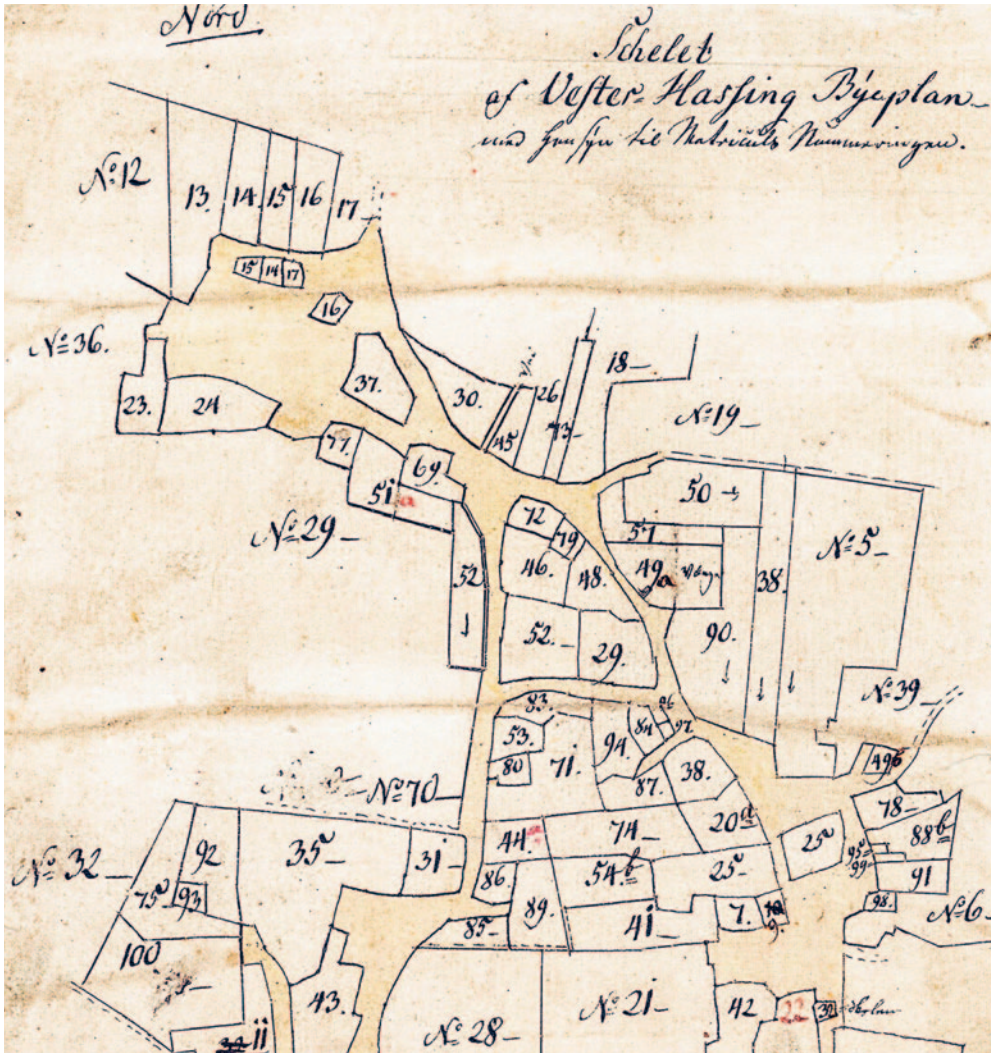 Nord
Schelet
af Vester-Hassing Byeplan
med Hensyn til Matriculs Nummeringen.
No 12
13.
14.
15
16
17
15
14
17
16
No 36.
37.
30.
45
26
73
18
No 19
23.
24
77.
69.
51 a
No 29
52
72
79
46.
48.
50
57
49 a
38.
No 5
52.
29.
90.
No 39
83.
53.
80
71.
94
84
96
97.
87.
38.
49 b
No 70
78
88 b
44. a
74
20 a
25
95
99
91
No 32
92
35
31
75
93
86
54. b
25
98.
No 6
89.
7.
9.
85
41
100
43.
No 28
No 21
42
22
32
11